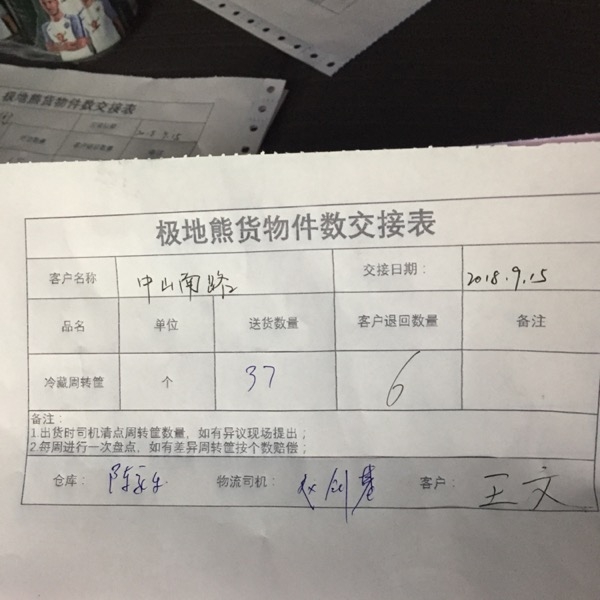 极地熊货物件数交接表
2018.9.15
极地熊货物件数交接表
客户名称 中山南路2 交接日期: 2018.9.15
品名 单位 送货数量 客户退回数量 备注
冷藏周转筐 个 37 6
备注:
1.出货时司机清点周转筐数量,如有异议现场提出;
2.每周进行一次盘点,如有差异周转筐按个数赔偿;
仓库: 物流司机: 客户: 王文